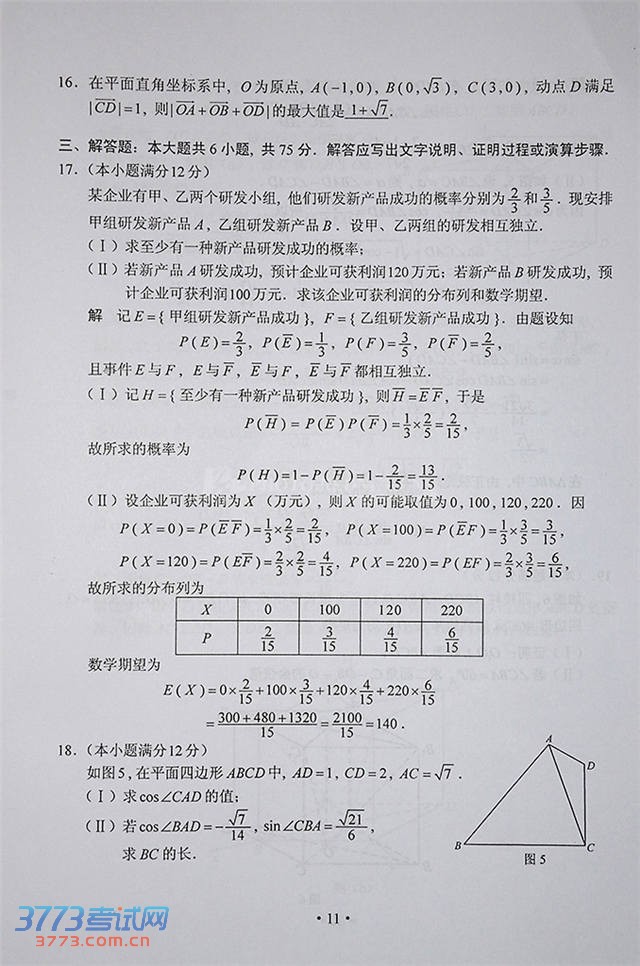 16. 在平面直角坐标系中, O为原点, A(−1,0), B(0,√3), C(3,0), 动点D满足
|CD̅|=1, 则|OA̅+OB̅+OD̅|的最大值是 1+√7.
三、解答题: 本大题共6小题, 共75分. 解答应写出文字说明、证明过程或演算步骤.
17. (本小题满分12分)
某企业有甲、乙两个研发小组, 他们研发新产品成功的概率分别为2/3和3/5. 现安排
甲组研发新产品A, 乙组研发新产品B. 设甲、乙两组的研发相互独立.
(Ⅰ)求至少有一种新产品研发成功的概率;
(Ⅱ)若新产品A研发成功, 预计企业可获利润120万元; 若新产品B研发成功, 预
计企业可获利润100万元. 求该企业可获利润的分布列和数学期望.
解 记E={甲组研发新产品成功}, F={乙组研发新产品成功}. 由题设知
P(E)=2/3, P(E̅)=1/3, P(F)=3/5, P(F̅)=2/5,
且事件E与F, E与F̅, E̅与F, E̅与F̅都相互独立.
(Ⅰ)记H={至少有一种新产品研发成功}, 则H̅=E̅F̅, 于是
P(H̅)=P(E̅)P(F̅)=1/3×2/5=2/15,
故所求的概率为
P(H)=1−P(H̅)=1−2/15=13/15.
(Ⅱ)设企业可获利润为X(万元), 则X的可能取值为0,100,120,220. 因
P(X=0)=P(E̅F̅)=1/3×2/5=2/15, P(X=100)=P(E̅F)=1/3×3/5=3/15,
P(X=120)=P(EF̅)=2/3×2/5=4/15, P(X=220)=P(EF)=2/3×3/5=6/15,
故所求的分布列为
X 0 100 120 220
P 2/15 3/15 4/15 6/15
数学期望为
E(X)=0×2/15+100×3/15+120×4/15+220×6/15
=(300+480+1320)/15=2100/15=140.
18. (本小题满分12分)
如图5, 在平面四边形ABCD中, AD=1, CD=2, AC=√7.
(Ⅰ)求cos∠CAD的值;
(Ⅱ)若cos∠BAD=−√7/14, sin∠CBA=√21/6,
求BC的长.
A
D
B
C
图5
·11·
3773考试网
3773.com.cn